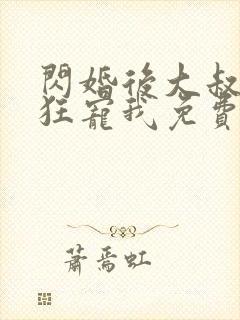 閃婚後大叔
狂寵我免費
蕭焉虹